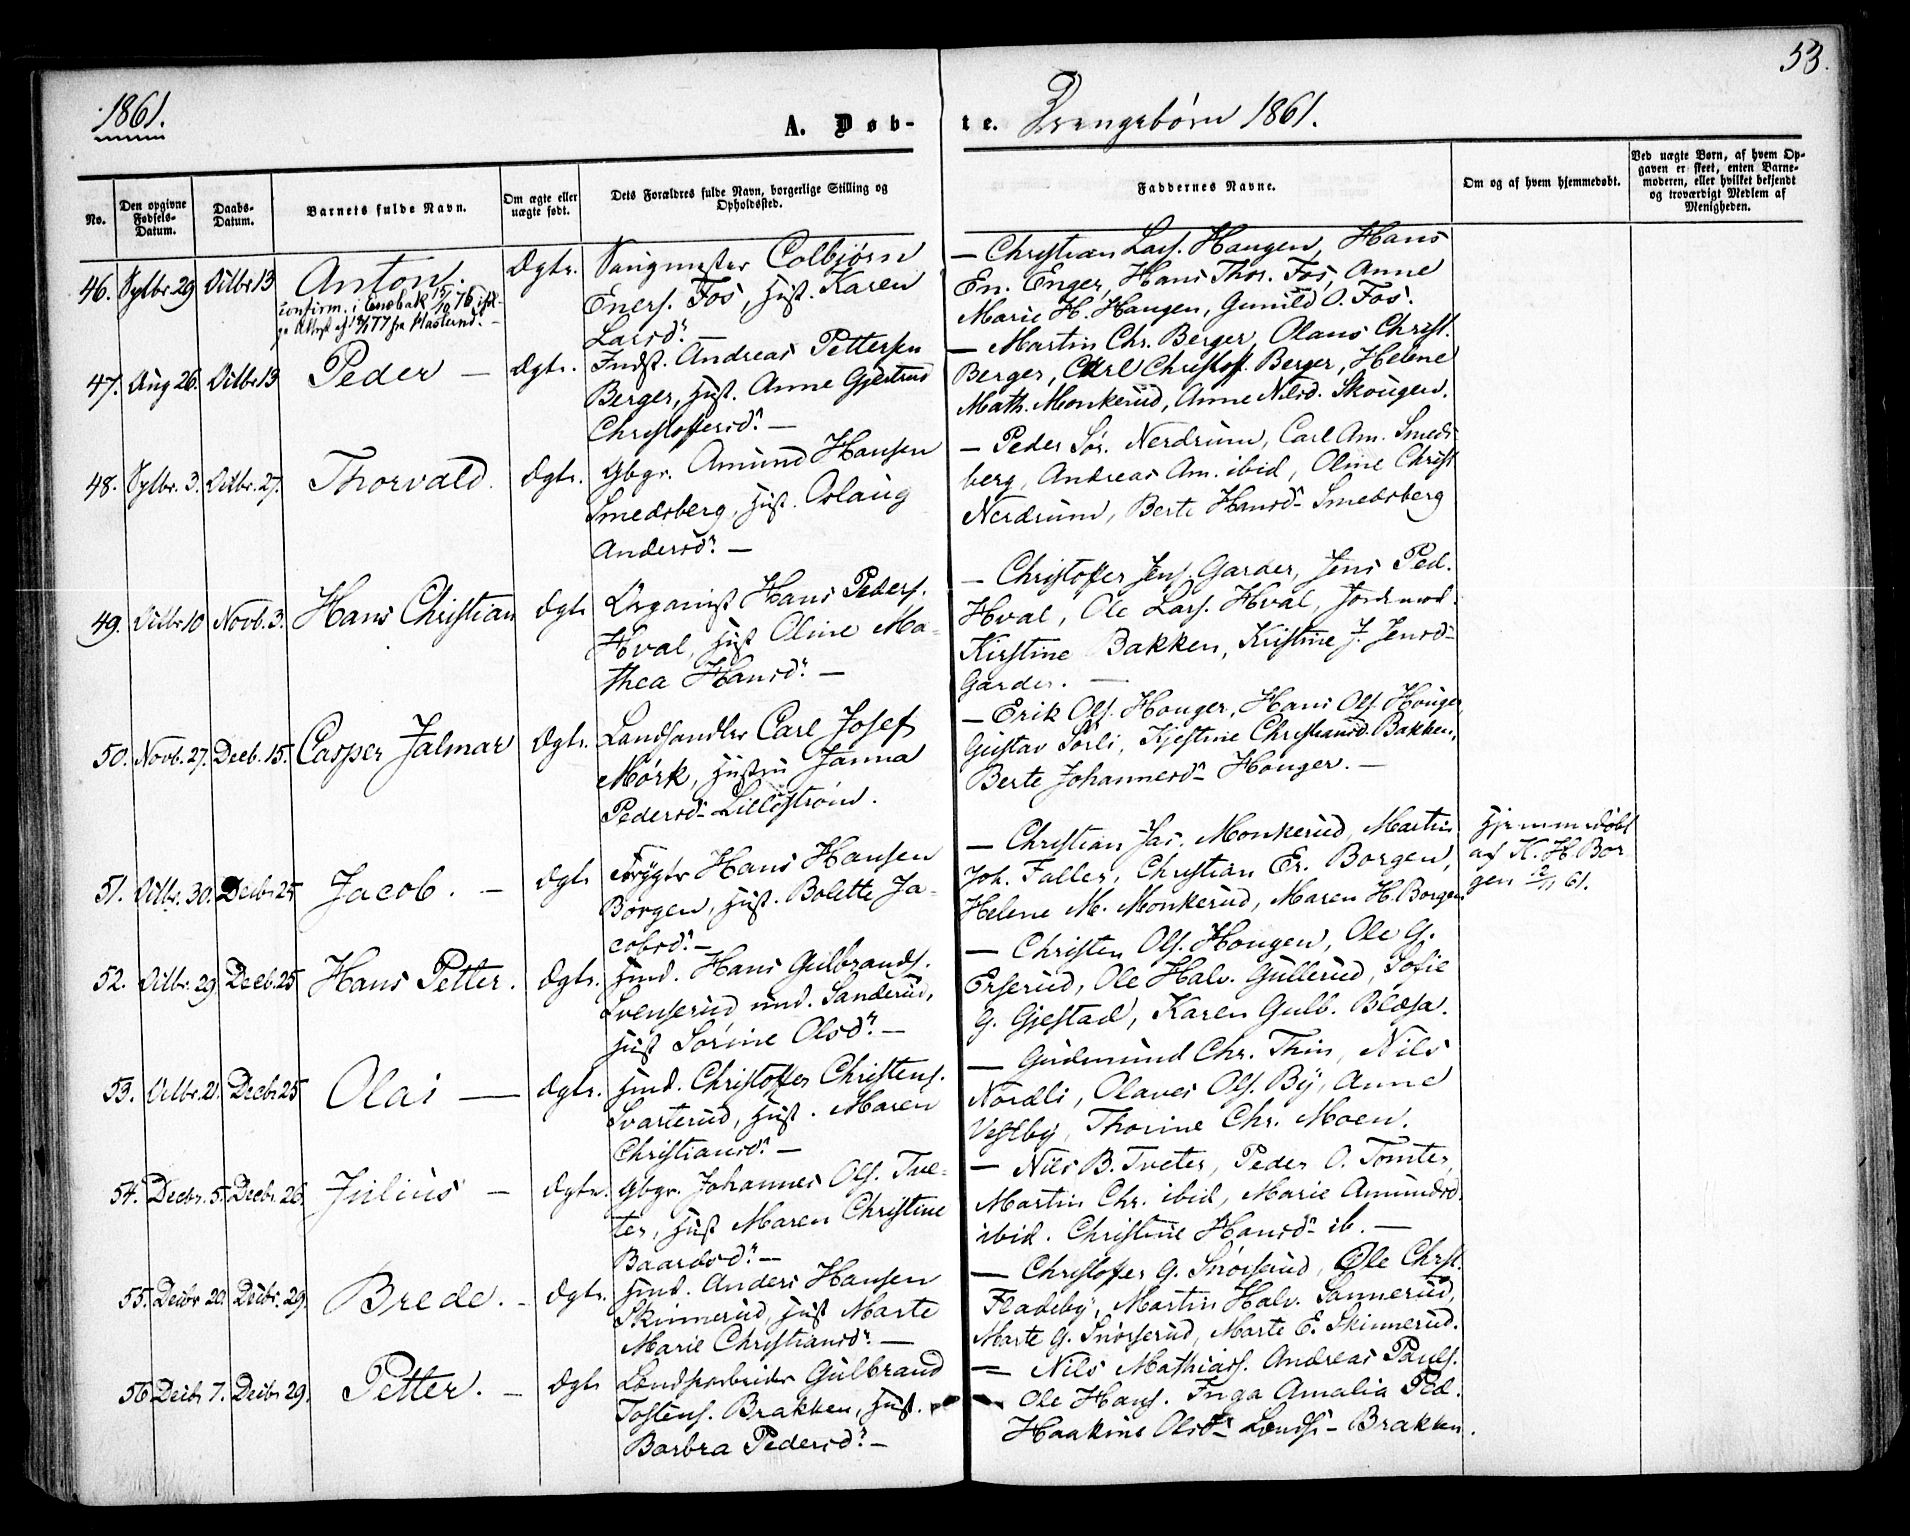 53.
1861.
A. Døbte. Drengebørn 1861.
No.
Den opgivne Fødsels-Datum.
Daabs-Datum.
Barnets fulde Navn.
Om ægte eller uægte født.
Dets Forældres fulde Navn, borgerlige Stilling og Opholdssted.
Faddernes Navne.
Om og af hvem hjemmedøbt.
Ved uægte Børn, af hvem Opgaven er skeet, enten Barnemoderen, eller hvilket bekjendt og troværdigt Medlem af Menigheden.
46. Sptbr 29 Octbr 13 Anton. Ægte.
confirm. i Enebak 15/10 76
Sangmester Colbjørn
Eners. Fos, Hust. Karen
Larsdr.
— Christian Lars. Haugen, Hans
En. Enger, Hans Thor. Fos, Anne
Marie H. Haugen, Gunild O. Fos.
47. Aug 26. Octbr 13 Peder — Ægte.
Indst. Andreas Pettersen
Berger, Hust. Anne Gjertrud
Christoffersdr. —
— Martin Chr. Berger, Olaus Christ.
Berger, Carl Christoff. Berger, Helene
Math. Monkerud, Anne Nilsd. Skougen.
48. Sptbr. 3. Octbr. 27. Thorvald. Ægte.
Gbgr. Amund Hansen
Smedsberg, Hust. Aslaug
Andersdr. —
— Peder Sør. Nerdrum, Carl Am. Smeds
berg, Andreas Am. ibid, Oline Christ
Nerdrum, Berte Hansdr Smedsberg
49. Octbr 10 Novb. 3. Hans Christian Ægte
Organist Hans Peders.
Hval, Hust Oline Ma-
thea Hansdr. —
— Christoffer Jens. Garder, Jens Ped.
Hval, Ole Lars. Hval, Jordmod.
Kirstine Bakken, Kristine J. Jensdr
Garder. —
50. Novb. 27. Decb. 15. Casper Jalmar Ægte.
Landhandler Carl Josef
Mørk, Hustru Janna
Pedersdr Lillestrøm.
— Erik Ols. Houger, Hans Ols. Houger,
Gustav Sørli, Kjestine Christiansd. Bakken,
Berte Johannesdr Houger. —
51. Octbr. 30. Decbr 25 Jacob. — Ægte
Hans Hansen
Borgen, Hust. Bolette Ja-
cobsdr. —
— Christian Jac. Monkerud, Martin
Joh. Faller, Christian Er. Borgen,
Helene M. Monkerud, Maren H. Borgen
Hjemmedøbt
af K. H. Bor
gen 12/11 61.
52. Octbr. 29 Decb. 25 Hans Petter. Ægte.
Hmd. Hans Gulbrands.
Svenserud und. Sanderud,
Hust Sørine Olsdr. —
— Christen Ols. Hougen, Ole G.
Erserud, Ole Halv. Gullerud, Sofie
G. Gjestad, Karen Gulb. Blæsa.
53. Octbr. 21. Decbr 25 Olai — Ægte.
Hmd. Christoffer Christens.
Svarterud, Hust. Maren
Christiansdr. —
— Gudmund Chr. Thin, Nils
Nordli, Olaves Ols. By, Anne
Vestby, Thorine Chr. Moen.
54. Decbr. 5. Decbr. 26. Julius — Ægte.
Gbgr. Johannes Ols. Tve-
ter, Hust Maren Christine
Baardsdr. —
— Nils B. Tveter, Peder O. Tomter,
Martin Chr. ibid, Marie Amundsd.
ibid. Christine Hansdr ib. —
55. Decbr 20. Decbr. 29. Brede. — Ægte.
Hmd. Anders Hansen
Skinnerud, Hust Marte
Marie Christiansdr. —
— Christoffer G. Snørserud, Ole Christ.
Fladeby, Martin Halv. Sannerud,
Marte G. Snørserud, Marte E. Skinnerud.
56 Decbr 7. Decbr 29. Petter. — Ægte
Gulbrand
Tostens. Brakken, Hust.
Barbra Pedersdr. —
— Nils Mathiass. Andreas Pauls.
— Ole Hans. Inga Amalia Ped.
Haakine Olsdr — Brakken.